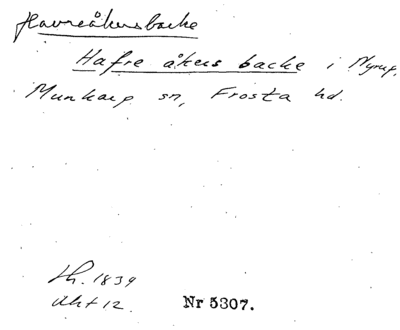 Havreåkersbacke
Hafre åkers backe i Nyrup,
Munkarp sn, Frosta hd.
Lh. 1839
Akt 12.
Nr 5307.